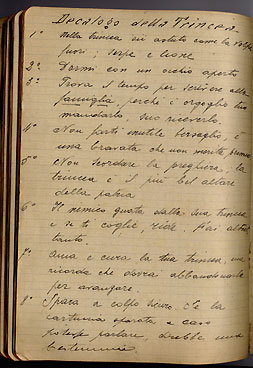 Decalogo della Trincea
1° Nella trincea sii astuto come la volpe
fuori; serpe e leone
2° Dormi con un occhio aperto
3° Trova il tempo per scrivere alla
famiglia, perché è orgoglio tuo
mandarlo, suo riceverlo.
4° Non farti inutile bersaglio, è
una bravata che non merita premio
5° Non scordare la preghiera; la
trincea è il più bel altare
della patria
6° Il nemico guata dalla sua trincea
e se ti coglie, ride. Fai altret
tanto.
7° Ama e cura la tua trincea, ma
ricorda che dovrai abbandonarla
per avanzare.
8° Spara a colpo sicuro. Se la
cartuccia sparata a caso
potesse parlare, direbbe una
bestemmia